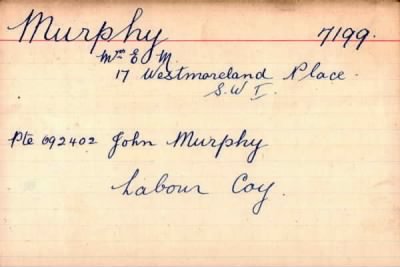 Murphy 7199.
Mrs E M.
17 Westmoreland Place.
S.W I.
Pte 692402 John Murphy
Labour Coy.